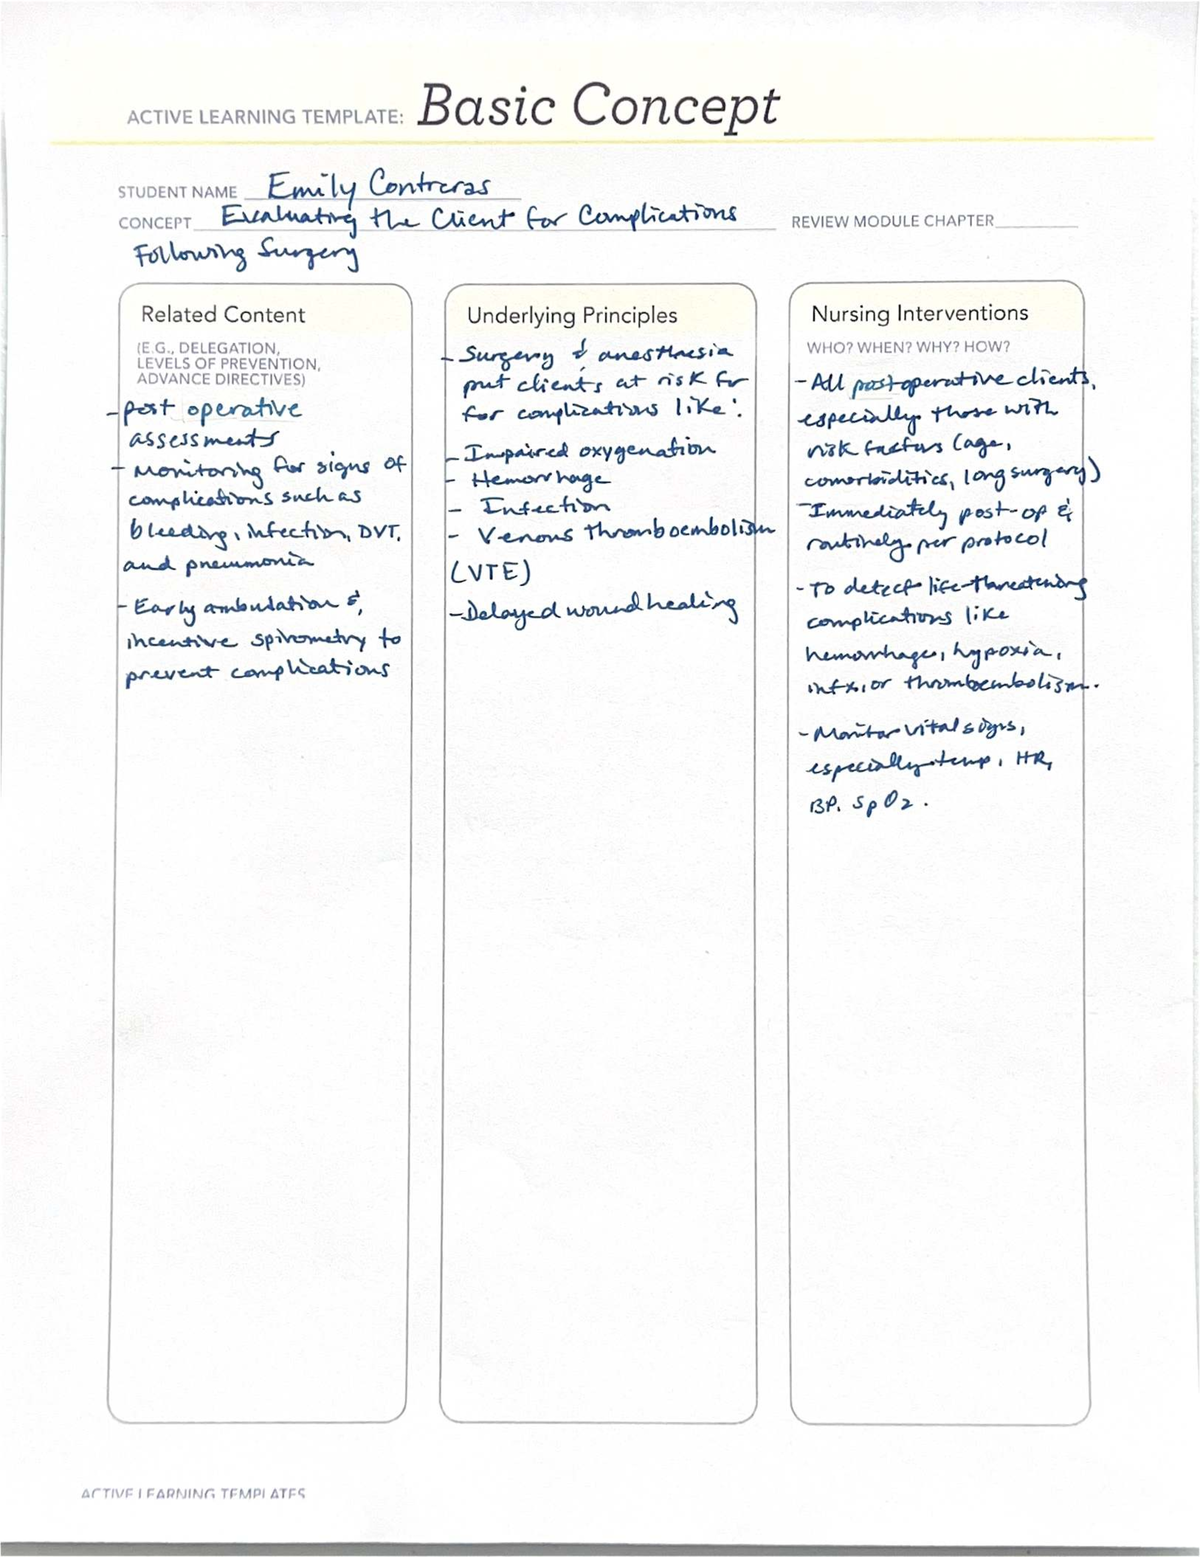 ACTIVE LEARNING TEMPLATE: Basic Concept
STUDENT NAME Emily Contreras
CONCEPT Evaluating the Client for Complications
REVIEW MODULE CHAPTER
Following Surgery
Related Content
(E.G., DELEGATION,
LEVELS OF PREVENTION,
ADVANCE DIRECTIVES)
- post operative
assessments
- Monitoring for signs of
complications such as
bleeding, infection, DVT,
and pneumonia
- Early ambulation &
incentive spirometry to
prevent complications
Underlying Principles
- Surgery & anesthesia
put clients at risk for
for complications like:
- Impaired oxygenation
- Hemorrhage
- Infection
- Venous thromboembolism
(VTE)
- Delayed wound healing
Nursing Interventions
WHO? WHEN? WHY? HOW?
- All postoperative clients,
especially those with
risk factors (age,
comorbidities, long surgery)
- Immediately post-op &
routinely per protocol
- To detect life-threatening
complications like
hemorrhage, hypoxia,
infx, or thromboembolism.
- Monitor vital signs,
especially temp, HR,
BP, SpO2.
ACTIVE LEARNING TEMPLATES